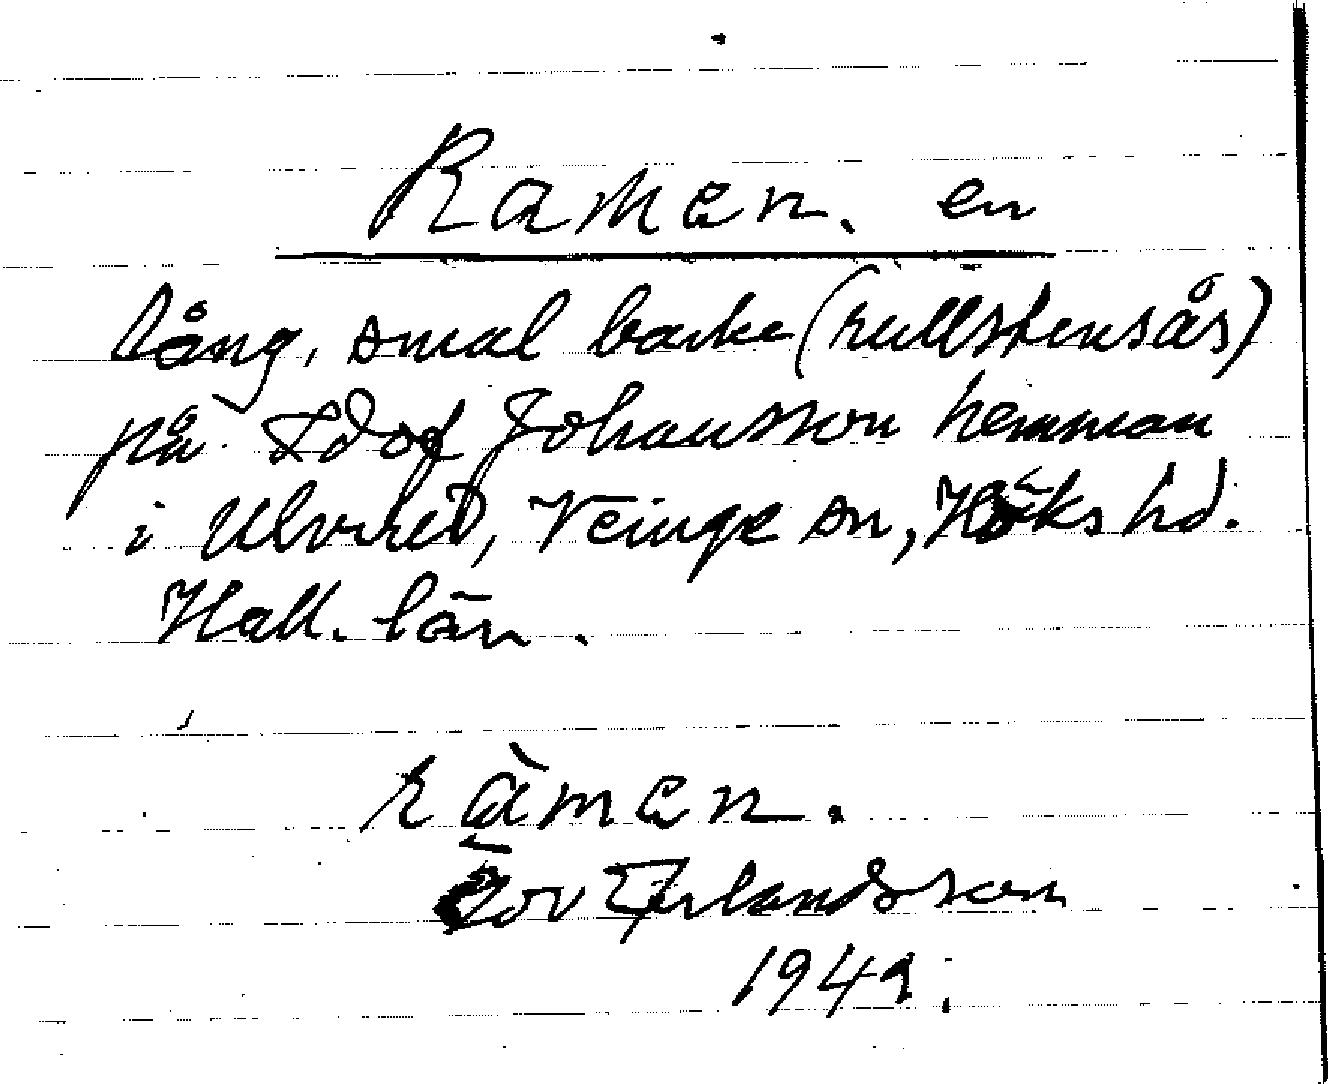 Ramen. en
lång, smal backe (rullstensås)
på Johansson hemman
i Ulvered, Veinge sn, Höks hd.
Hall. län.
ràmen.
Erlandsson
1949.